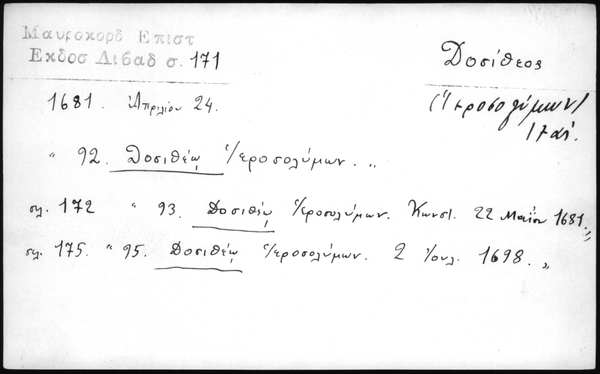 Μαυροκορδ Επιστ
Εκδοσ Λιβαδ σ. 171
Δοσίθεος
(Ἱεροσολύμων)
17 αἰ.
1681. Ἀπριλίου 24.
" 92. Δοσιθέῳ Ἱεροσολύμων. "
σελ. 172 " 93. Δοσιθέῳ Ἱεροσολύμων. Κωνστ. 22 Μαΐου 1681. "
σελ. 175. " 95. Δοσιθέῳ Ἱεροσολύμων. 2 Ἰουλ. 1698. "